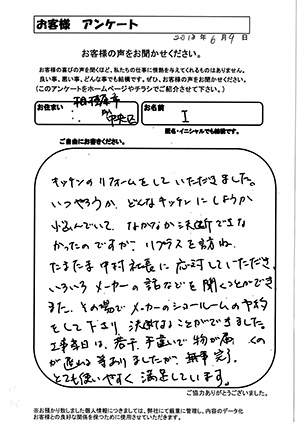 お客様 アンケート
2018年6月9日
お客様の声をお聞かせください。
お客様の喜びの声を聞くほど、私たちの仕事に情熱を与えてくれるものはありません。
良い事、悪い事、どんな事でも結構です。ぜひ、お客様の声をお聞かせください。
(このアンケートをホームページやチラシでご紹介させて下さい。)
お住まい
相模原市
中央区
お名前
I
匿名・イニシャルでも結構です。
ご自由にお書きください。
キッチンのリフォームをしていただきました。
いつやろうか、どんなキッチンにしようか
悩んでいて、なかなか決断できな
かったのですが、リプラスを訪ね、
たまたま中村社長に応対していただき、
いろいろメーカーの話などを聞くことができ
また、その場でメーカーのショールームの予約
をして下さり、決断することができました。
工事当日は、若干手違いで物が届くの
が遅れる等ありましたが、無事完了。
とても使いやすく満足しています。
ご協力ありがとうございました。
※お預かり致しました個人情報につきましては、弊社にて厳重に管理し、内容のデータ化
お客様との良好な関係を保つために使用させていただきます。